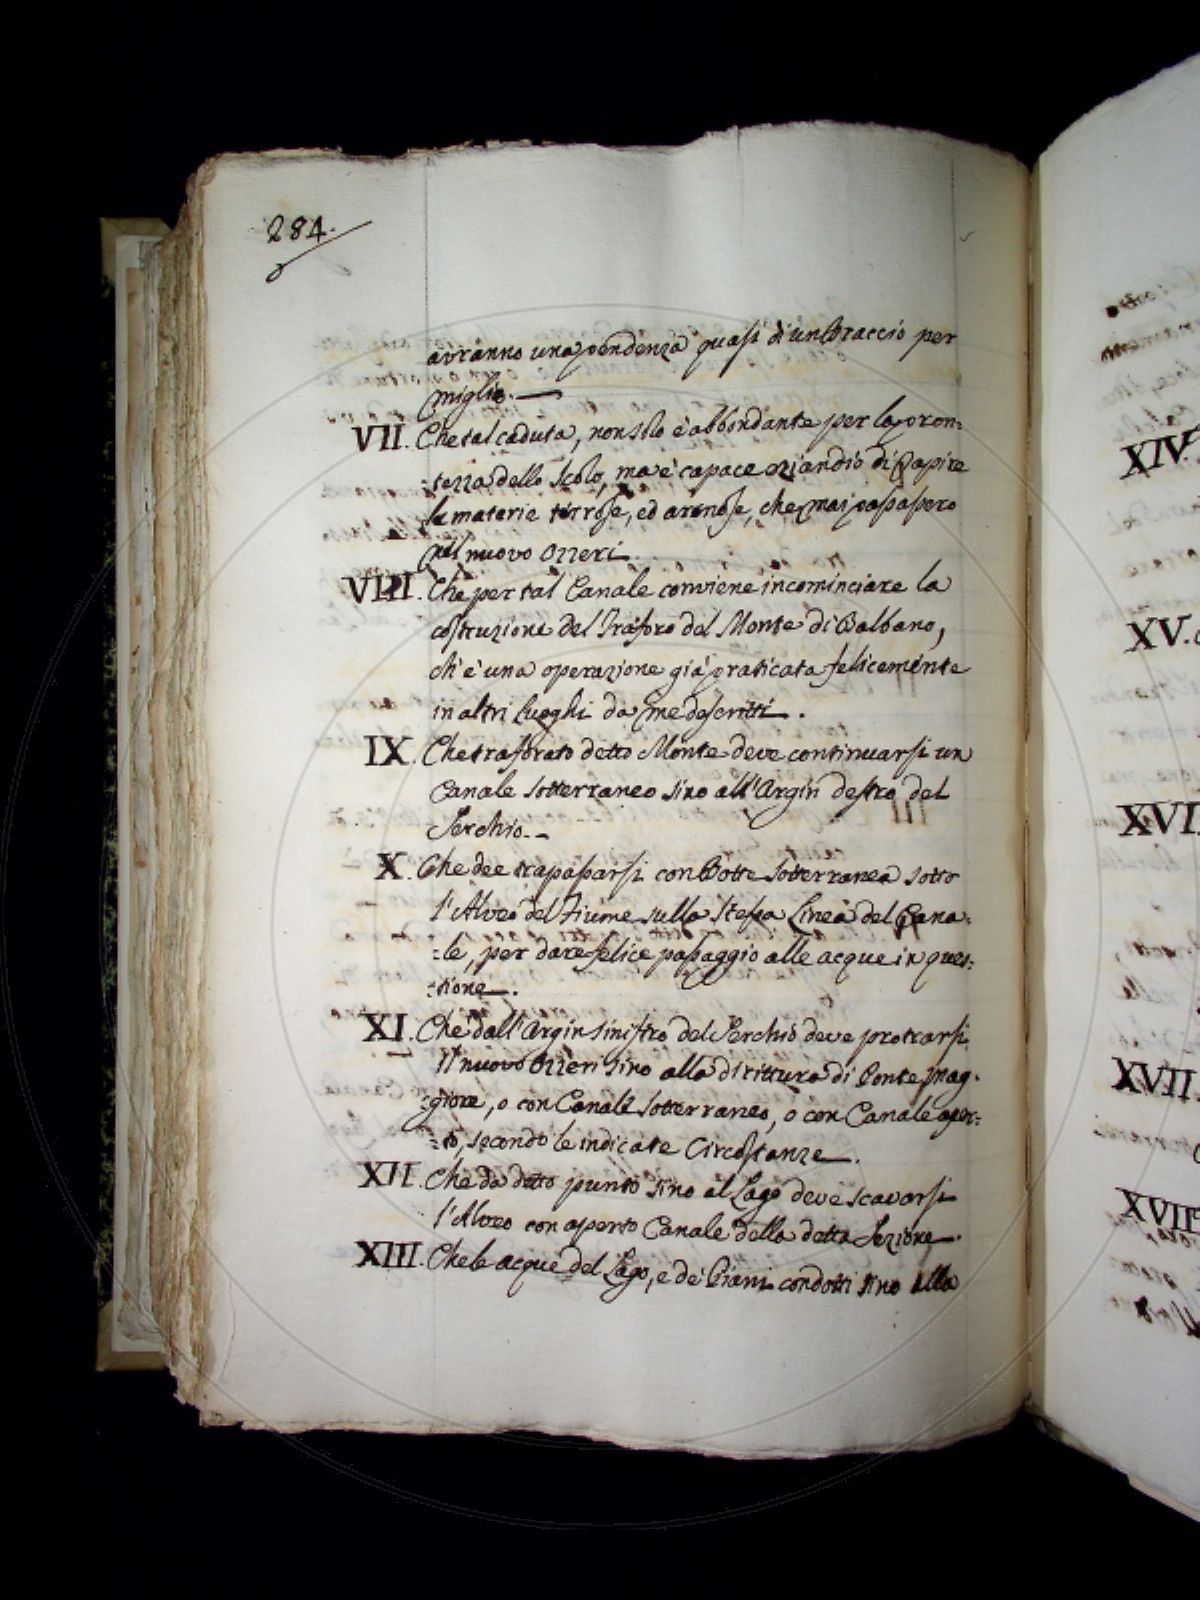 284.
avranno una pendenza quasi di un Braccio per
miglio.
VII. Che tal caduta, non solo è abbondante per la pron-
-tezza dello Scolo, ma è capace eziandio di rapire
le materie terrose, ed arenose, che mai passassero
nel nuovo Ozzeri.
VIII. Che per tal Canale conviene incominciare la
costruzione del Traforo del Monte di Balbano,
ch'è una operazione già praticata felicemente
in altri luoghi da me descritti.
IX. Che traforato detto Monte deve continuarsi un
Canale sotterraneo sino all'Argin destro del
Serchio.
X. Che dee trapassarsi con Botte sotterranea sotto
l'Alveo del Fiume sulla stessa Linea del Cana-
-le, per dare felice passaggio alle acque in ques-
-tione.
XI. Che dall'Argin sinistro del Serchio deve protrarsi
il nuovo Ozzeri sino alla dirittura di Ponte mag-
-giore, o con Canale sotterraneo, o con Canale aper-
-to, secondo le indicate Circostanze.
XII. Che da detto punto sino al Lago deve scavarsi
l'Alveo con aperto Canale della detta Sezione.
XIII. Che le acque del Lago, e de' Piani condotti sino alla
XIV.
XV.
XVI.
XVII.
XVIII